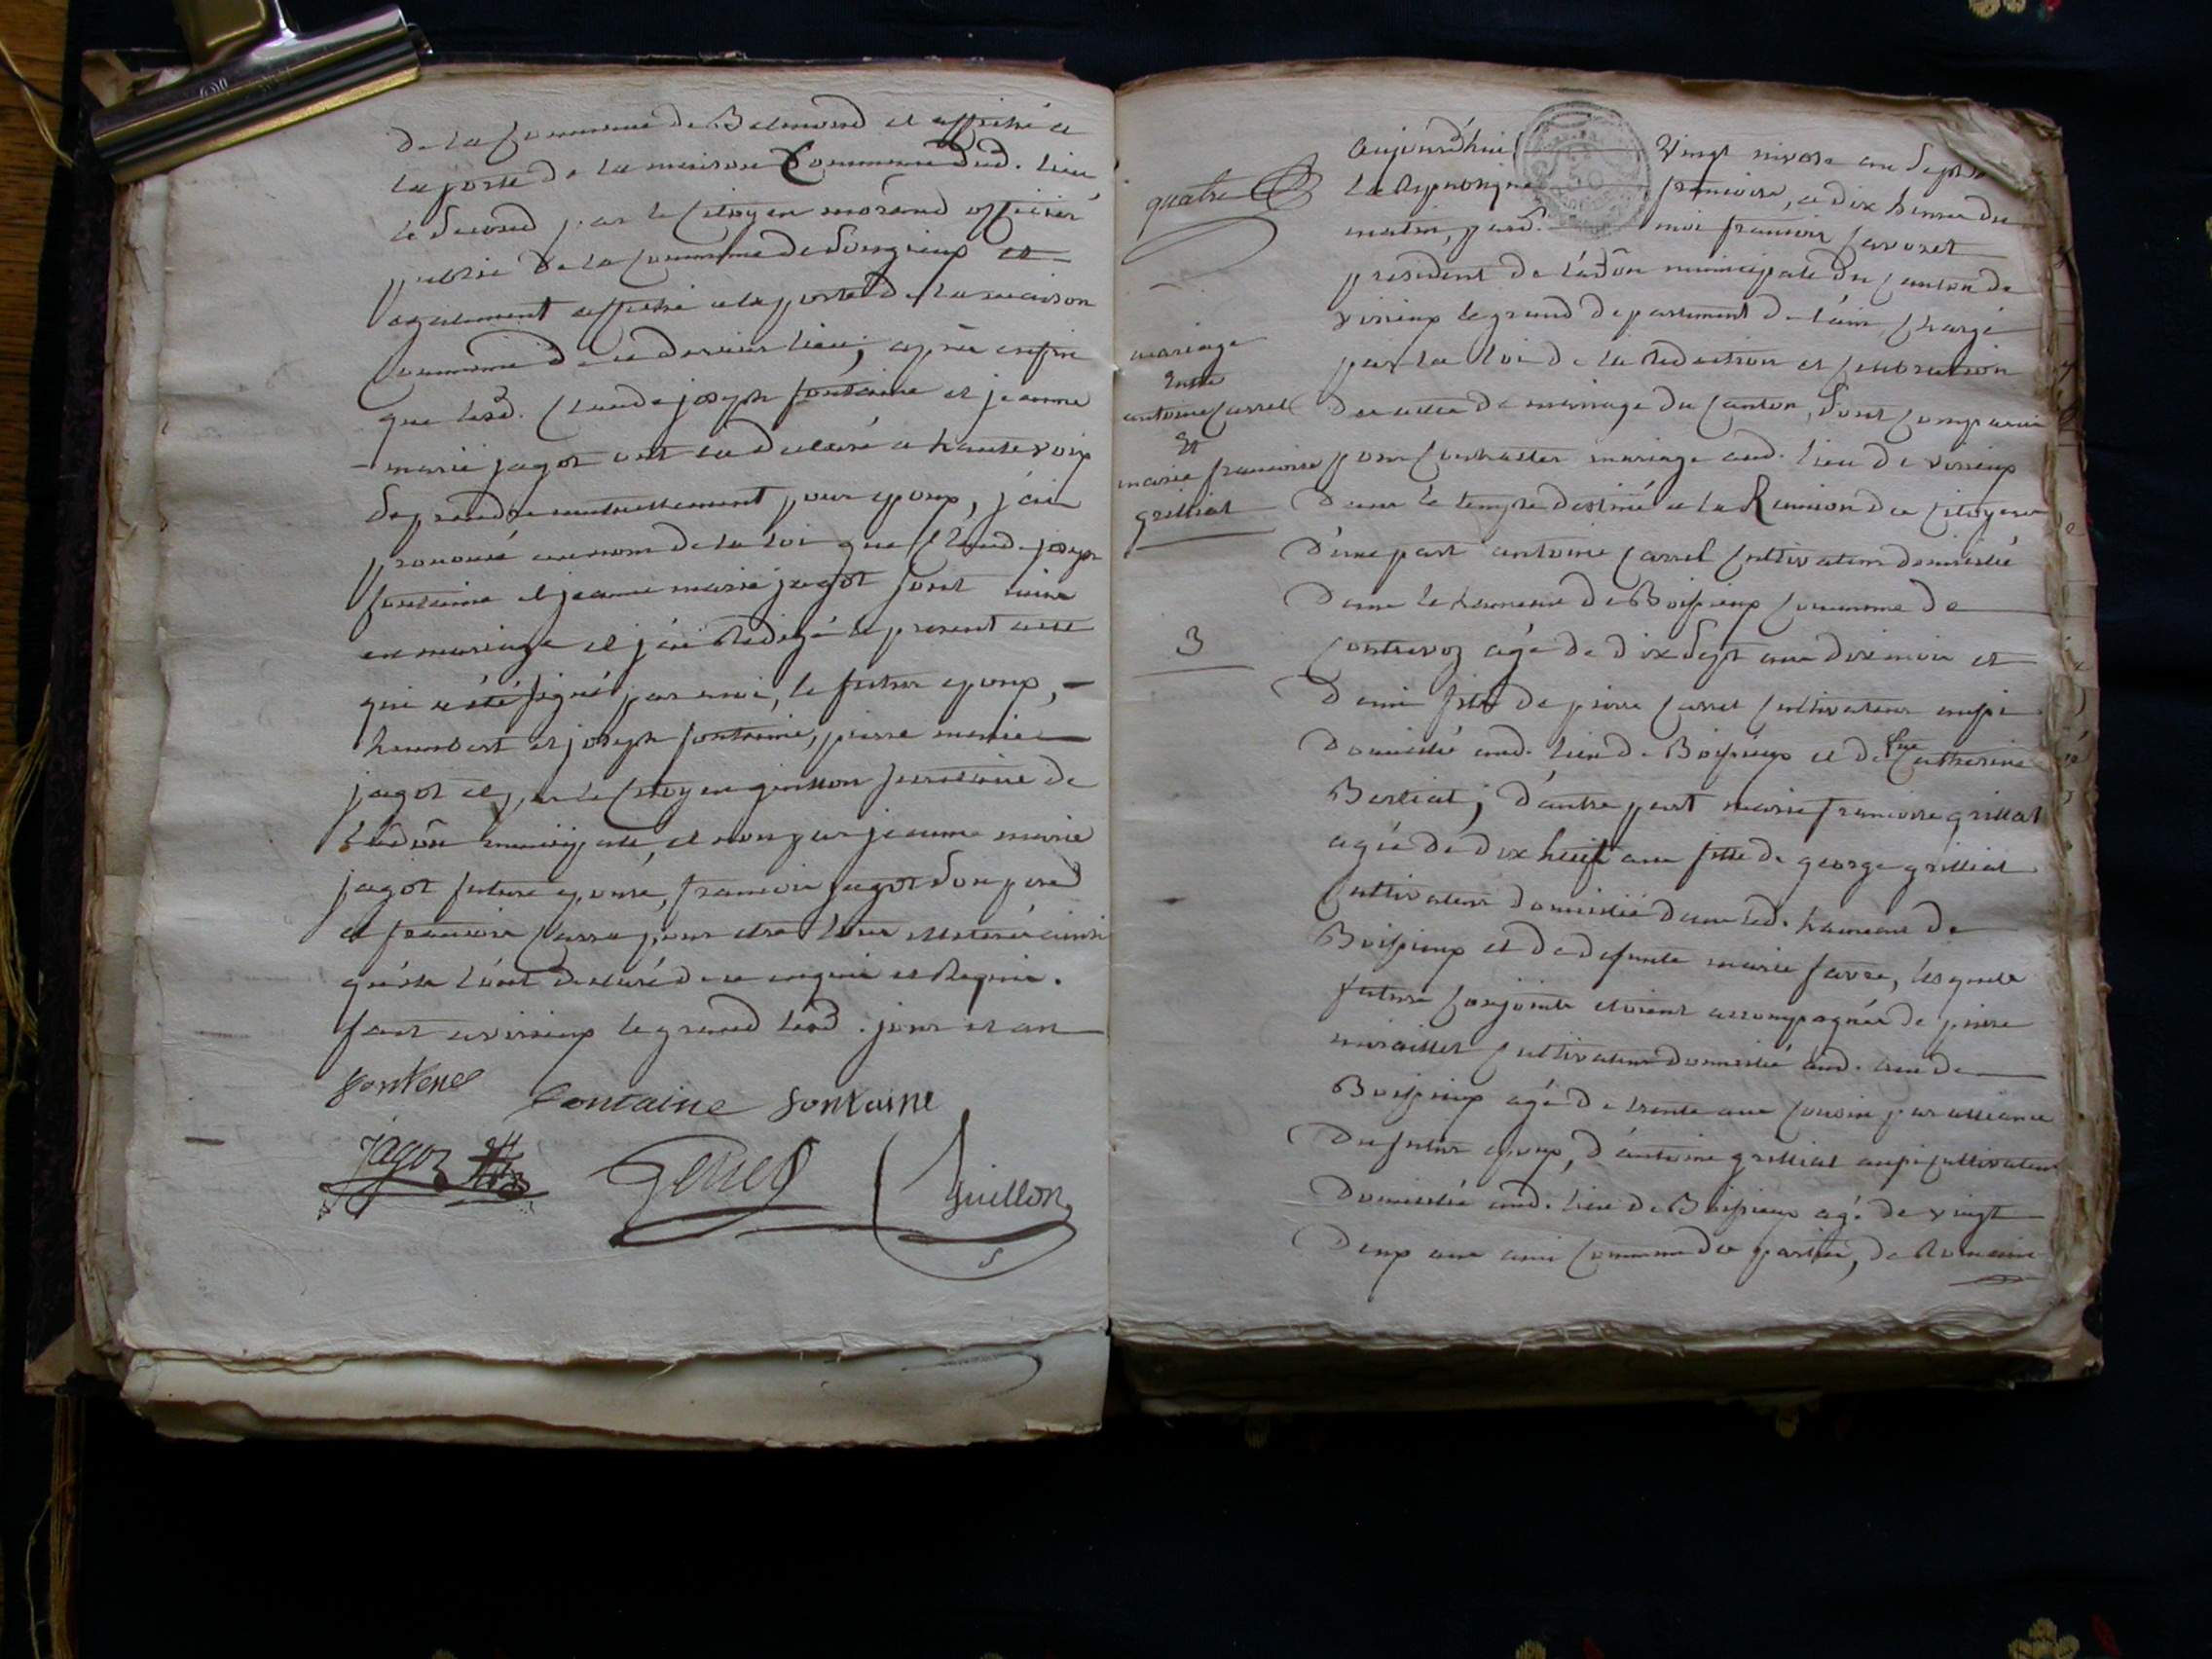 de la Commune de Belmond et affiché a
la porte de la maison Commune dud. lieu
le Second par le Citoyen morand officier
public de la Commune de Songieux et
egalement affiché a la porte de la maison
Commune de ce dernier lieu, après enfin
que lesd. Claude joseph fontaine et jeanne
marie jagot ont eu declaré a haute voix
Se prendre mutuellement pour epoux, j'ai
prononcé au nom de la loi que Claude joseph
fontaine et jeanne marie jagot sont unis
en mariage et j'ai Redigé le present acte
qui a été signé par moi, le futur epoux,
humbert et joseph fontaine, pierre marie
jagot et par le Citoyen guillon secretaire de
l'adôn municipale, et non par jeanne marie
jagot future epouse, francois jagot Son pere
et francoise pour etre tous illiterés ainsi
qu'ils l'ont declaré de ce enquis et Requis.
fait a virieux le grand lesd. jour et an
fontene fontaine fontaine
Jagot
guillon
quatre
mariage
Entre
antoine Carrel
Et
marie francoise
grilliat
3
Aujourd'hui Vingt nivose an Sept de
la Republique francoise, a dix heures du
matin, pard. moi francois Cavoret
president de l'adôn municipale du Canton de
virieux le grand departement de l'ain Chargé
par la loi de la Redaction et Celebration
des actes de mariage du Canton, Sont Comparus
pour Contracter mariage aud. lieu de virieux
dans le temple destiné a la Reunion des Citoyens
d'une part antoine Carrel Cultivateur domicilié
dans le hameau de Boissieux Commune de
Contrevoz agé de dix Sept ans dix mois et
demi fils de pierre Carrel Cultivateur aussi
domicilié aud. lieu de Boissieux et de Catherine
Berliat; d'autre part marie francoise grilliat
agée de dix huit ans fille de george grilliat
Cultivateur domicilié dans led. hameau de
Boissieux et de defunte marie favre, lesquels
futurs Conjoints etoient accompagnés de pierre
miraillet Cultivateur domicilié aud. lieu de
Boissieux agé de trente ans Cousin par alliance
du futur epoux, d'antoine grilliat aussi Cultivateur
domicilié aud. lieu de Boissieux agé de vingt
deux ans ami Commun des parties, de Romain